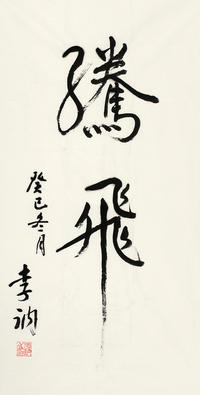 騰飛
癸巳冬月
李